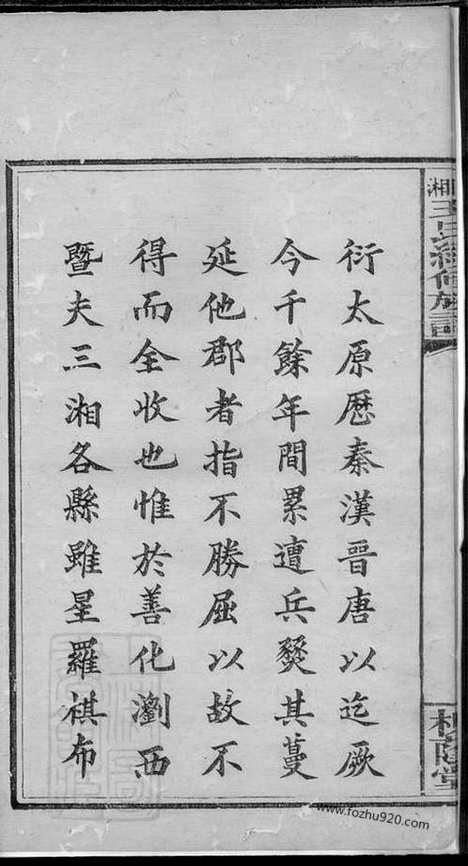 湘王氏續修族譜
槐蔭堂
衍太原厯秦漢晉唐以迄厥
今千餘年間累遭兵燹其蔓
延他郡者指不勝屈以故不
得而全收也惟於善化瀏西
暨夫三湘各縣雖星羅祺布
www.fozhu920.com